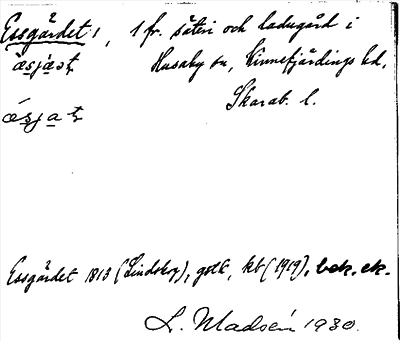 Essgärdet, 1 fr. säteri och ladugård i
Husaby sn, Kinnefjärdings hd,
Skarab. l.
Essgärdet 1813 (Lindskog), gstk, kb (1919), bek. ek.
L. Madsén 1930.